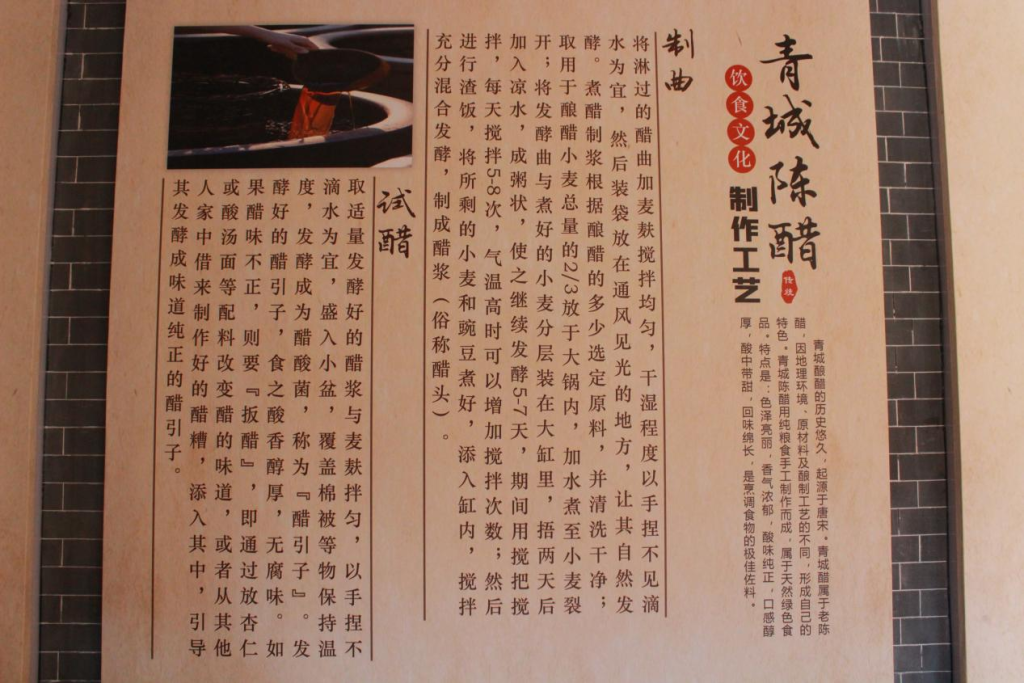 青城陈醋
传统
饮食文化
制作工艺
青城酿醋的历史悠久，起源于唐宋。青城醋属于老陈
醋，因地理环境、原材料及酿制工艺的不同，形成自己的
特色。青城陈醋用纯粮食手工制作而成，属于天然绿色食
品。特点是：色泽亮丽，香气浓郁，酸味纯正，口感醇
厚，酸中带甜，回味绵长，是烹调食物的极佳佐料。
制曲
将淋过的醋曲加麦麸搅拌均匀，干湿程度以手捏不见滴
水为宜，然后装袋放在通风见光的地方，让其自然发
酵。煮醋制浆根据酿醋的多少选定原料，并清洗干净；
取用于酿醋小麦总量的2/3放于大锅内，加水煮至小麦裂
开；将发酵曲与煮好的小麦分层装在大缸里，捂两天后
加入凉水，成粥状，使之继续发酵5-7天，期间用搅把搅
拌，每天搅拌5-8次，气温高时可以增加搅拌次数；然后
进行渣饭，将所剩的小麦和豌豆煮好，添入缸内，搅拌
充分混合发酵，制成醋浆（俗称醋头）。
试醋
取适量发酵好的醋浆与麦麸拌匀，以手捏不
滴水为宜，盛入小盆，覆盖棉被等物保持温
度，发酵成为醋酸菌，称为『醋引子』。发
酵好的醋引子，食之酸香醇厚，无腐味。如
果醋味不正，则要『扳醋』，即通过放杏仁
或酸汤面等配料改变醋的味道，或者从其他
人家中借来制作好的醋糟，添入其中，引导
其发酵成味道纯正的醋引子。